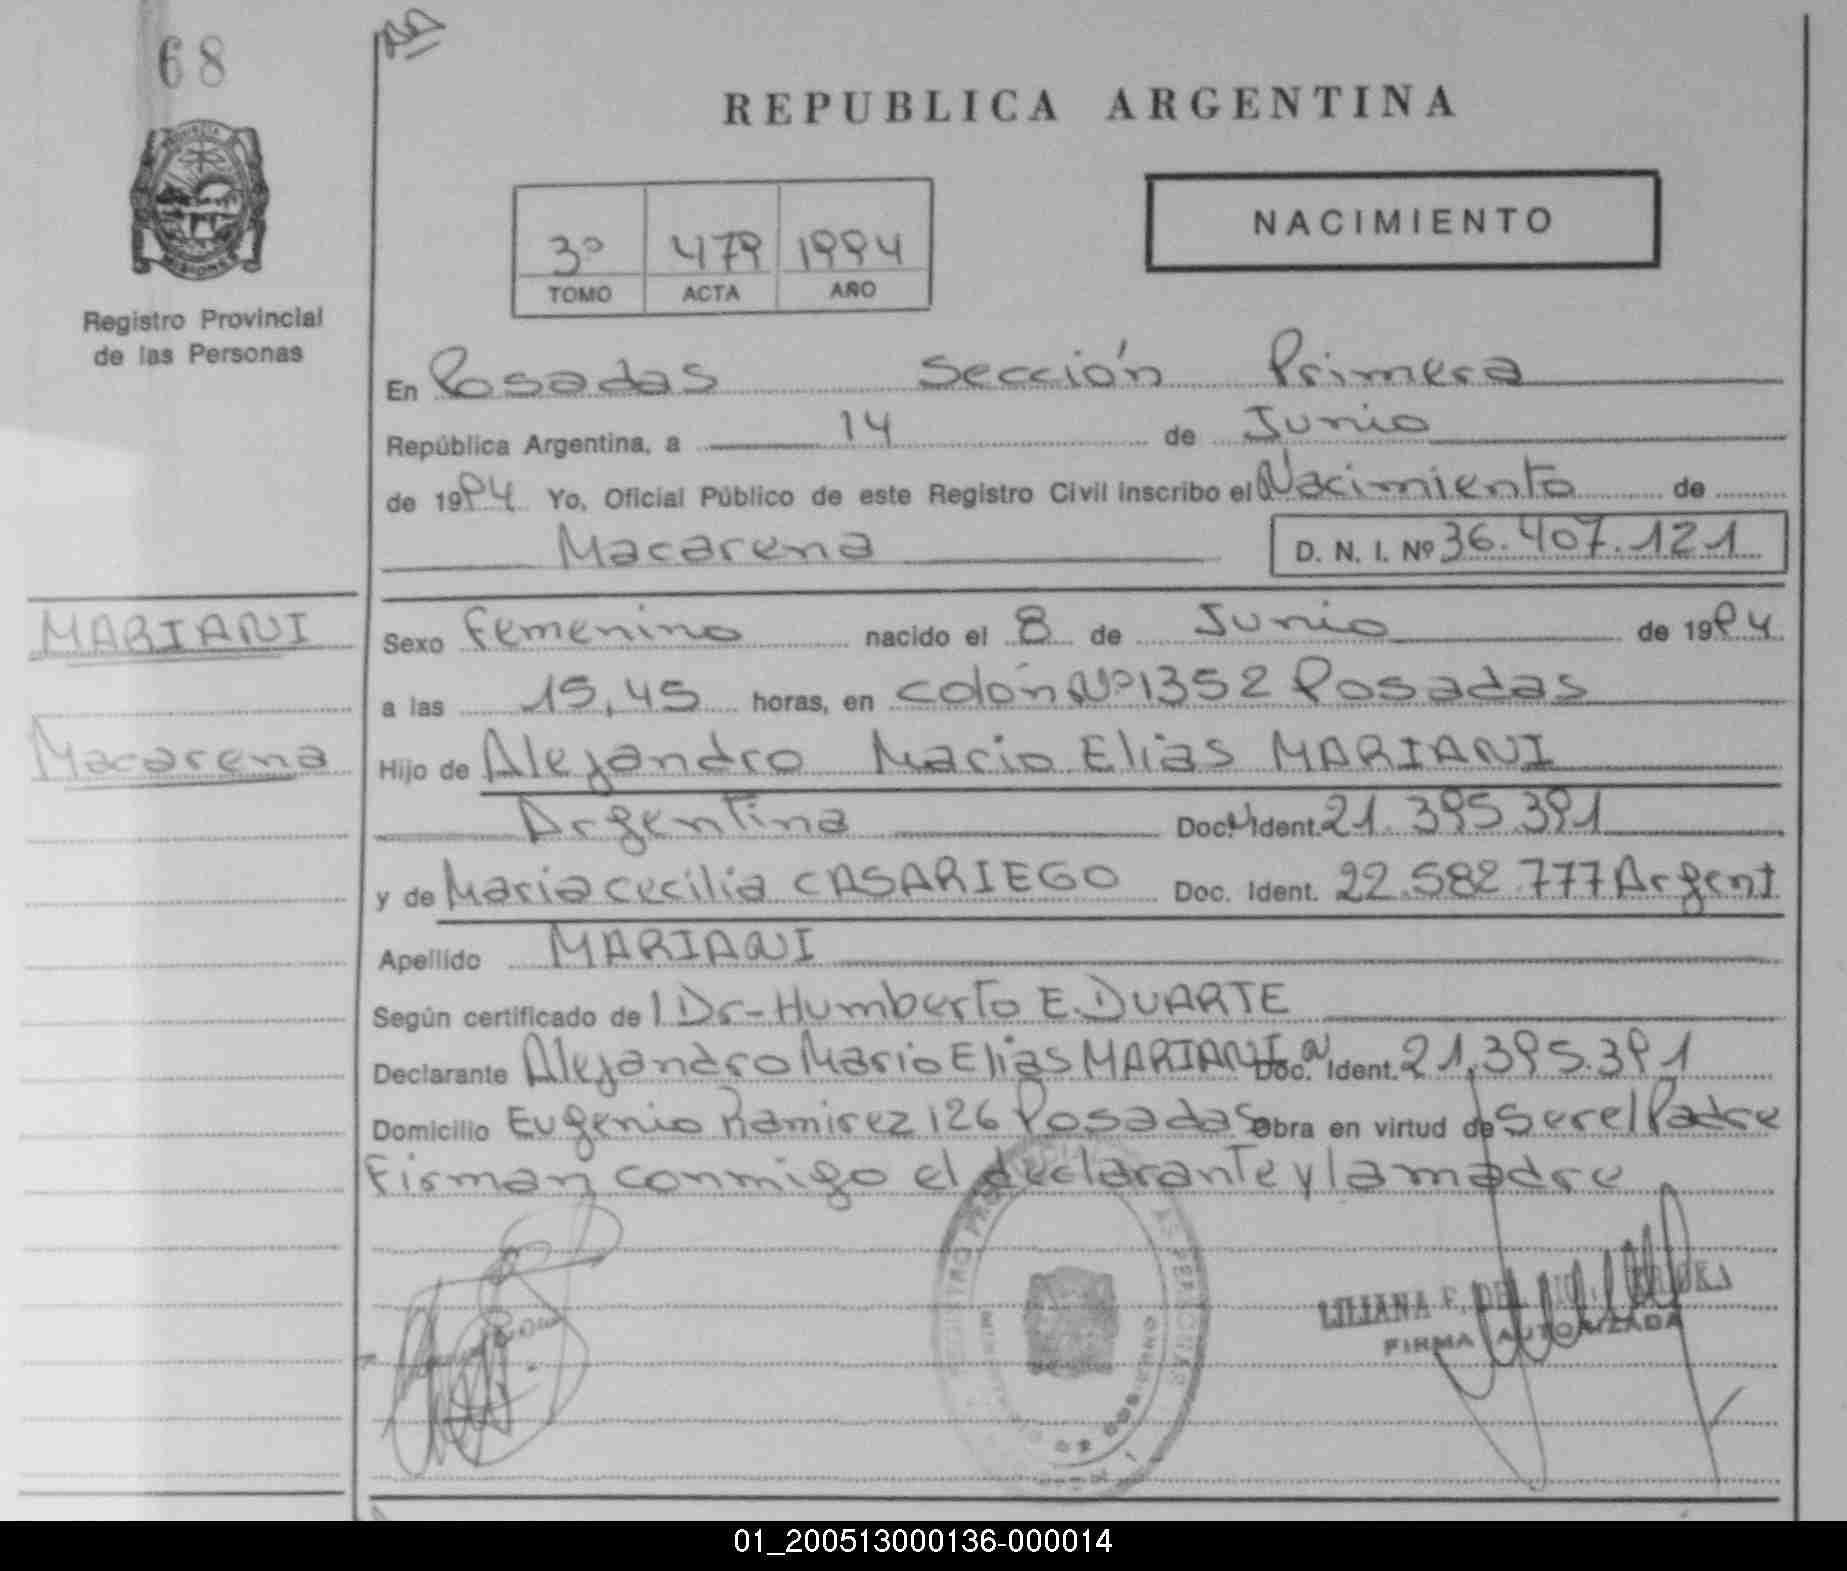 68
REPUBLICA ARGENTINA
NACIMIENTO
3º 479 1994
TOMO ACTA AÑO
MISIONES
Registro Provincial
de las Personas
En Posadas Sección Primera
República Argentina, a 14 de Junio
de 1994 Yo, Oficial Público de este Registro Civil inscribo el Nacimiento de
Macarena D. N. I. Nº 36.407.121
MARIANI
Macarena
Sexo Femenino nacido el 8 de Junio de 1994
a las 15,45 horas, en colón Nº 1352 Posadas
Hijo de Alejandro Mario Elias MARIANI
Argentina Doc. Ident. 21.395.391
y de Maria cecilia CASARIEGO Doc. Ident. 22.582.777 Argent
Apellido MARIANI
Según certificado de Dr. Humberto E. DUARTE
Declarante Alejandro Mario Elias MARIANI Doc. Ident. 21.395.391
Domicilio Eugenio Ramirez 126 Posadas Obra en virtud de ser el Padre
Firman conmigo el declarante y la madre
LILIANA F. DEL
FIRMA AUTORIZADA
01_200513000136-000014